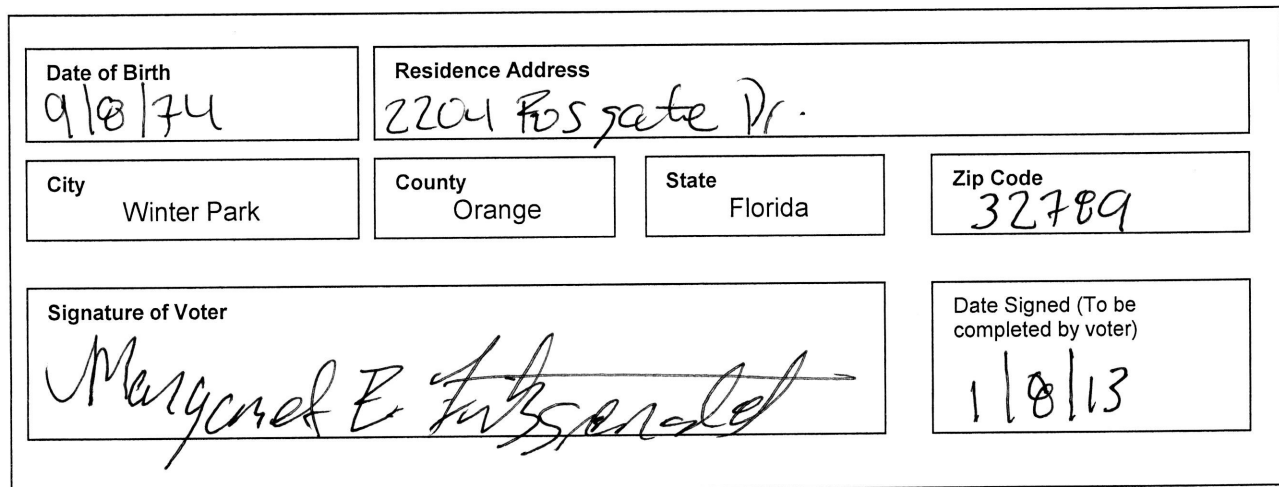 Date of Birth
9/8/74
Residence Address
2204 Fosgate Dr.
City
Winter Park
County
Orange
State
Florida
Zip Code
32789
Signature of Voter
Margaret E. Fitzgerald
Date Signed (To be
completed by voter)
1/8/13